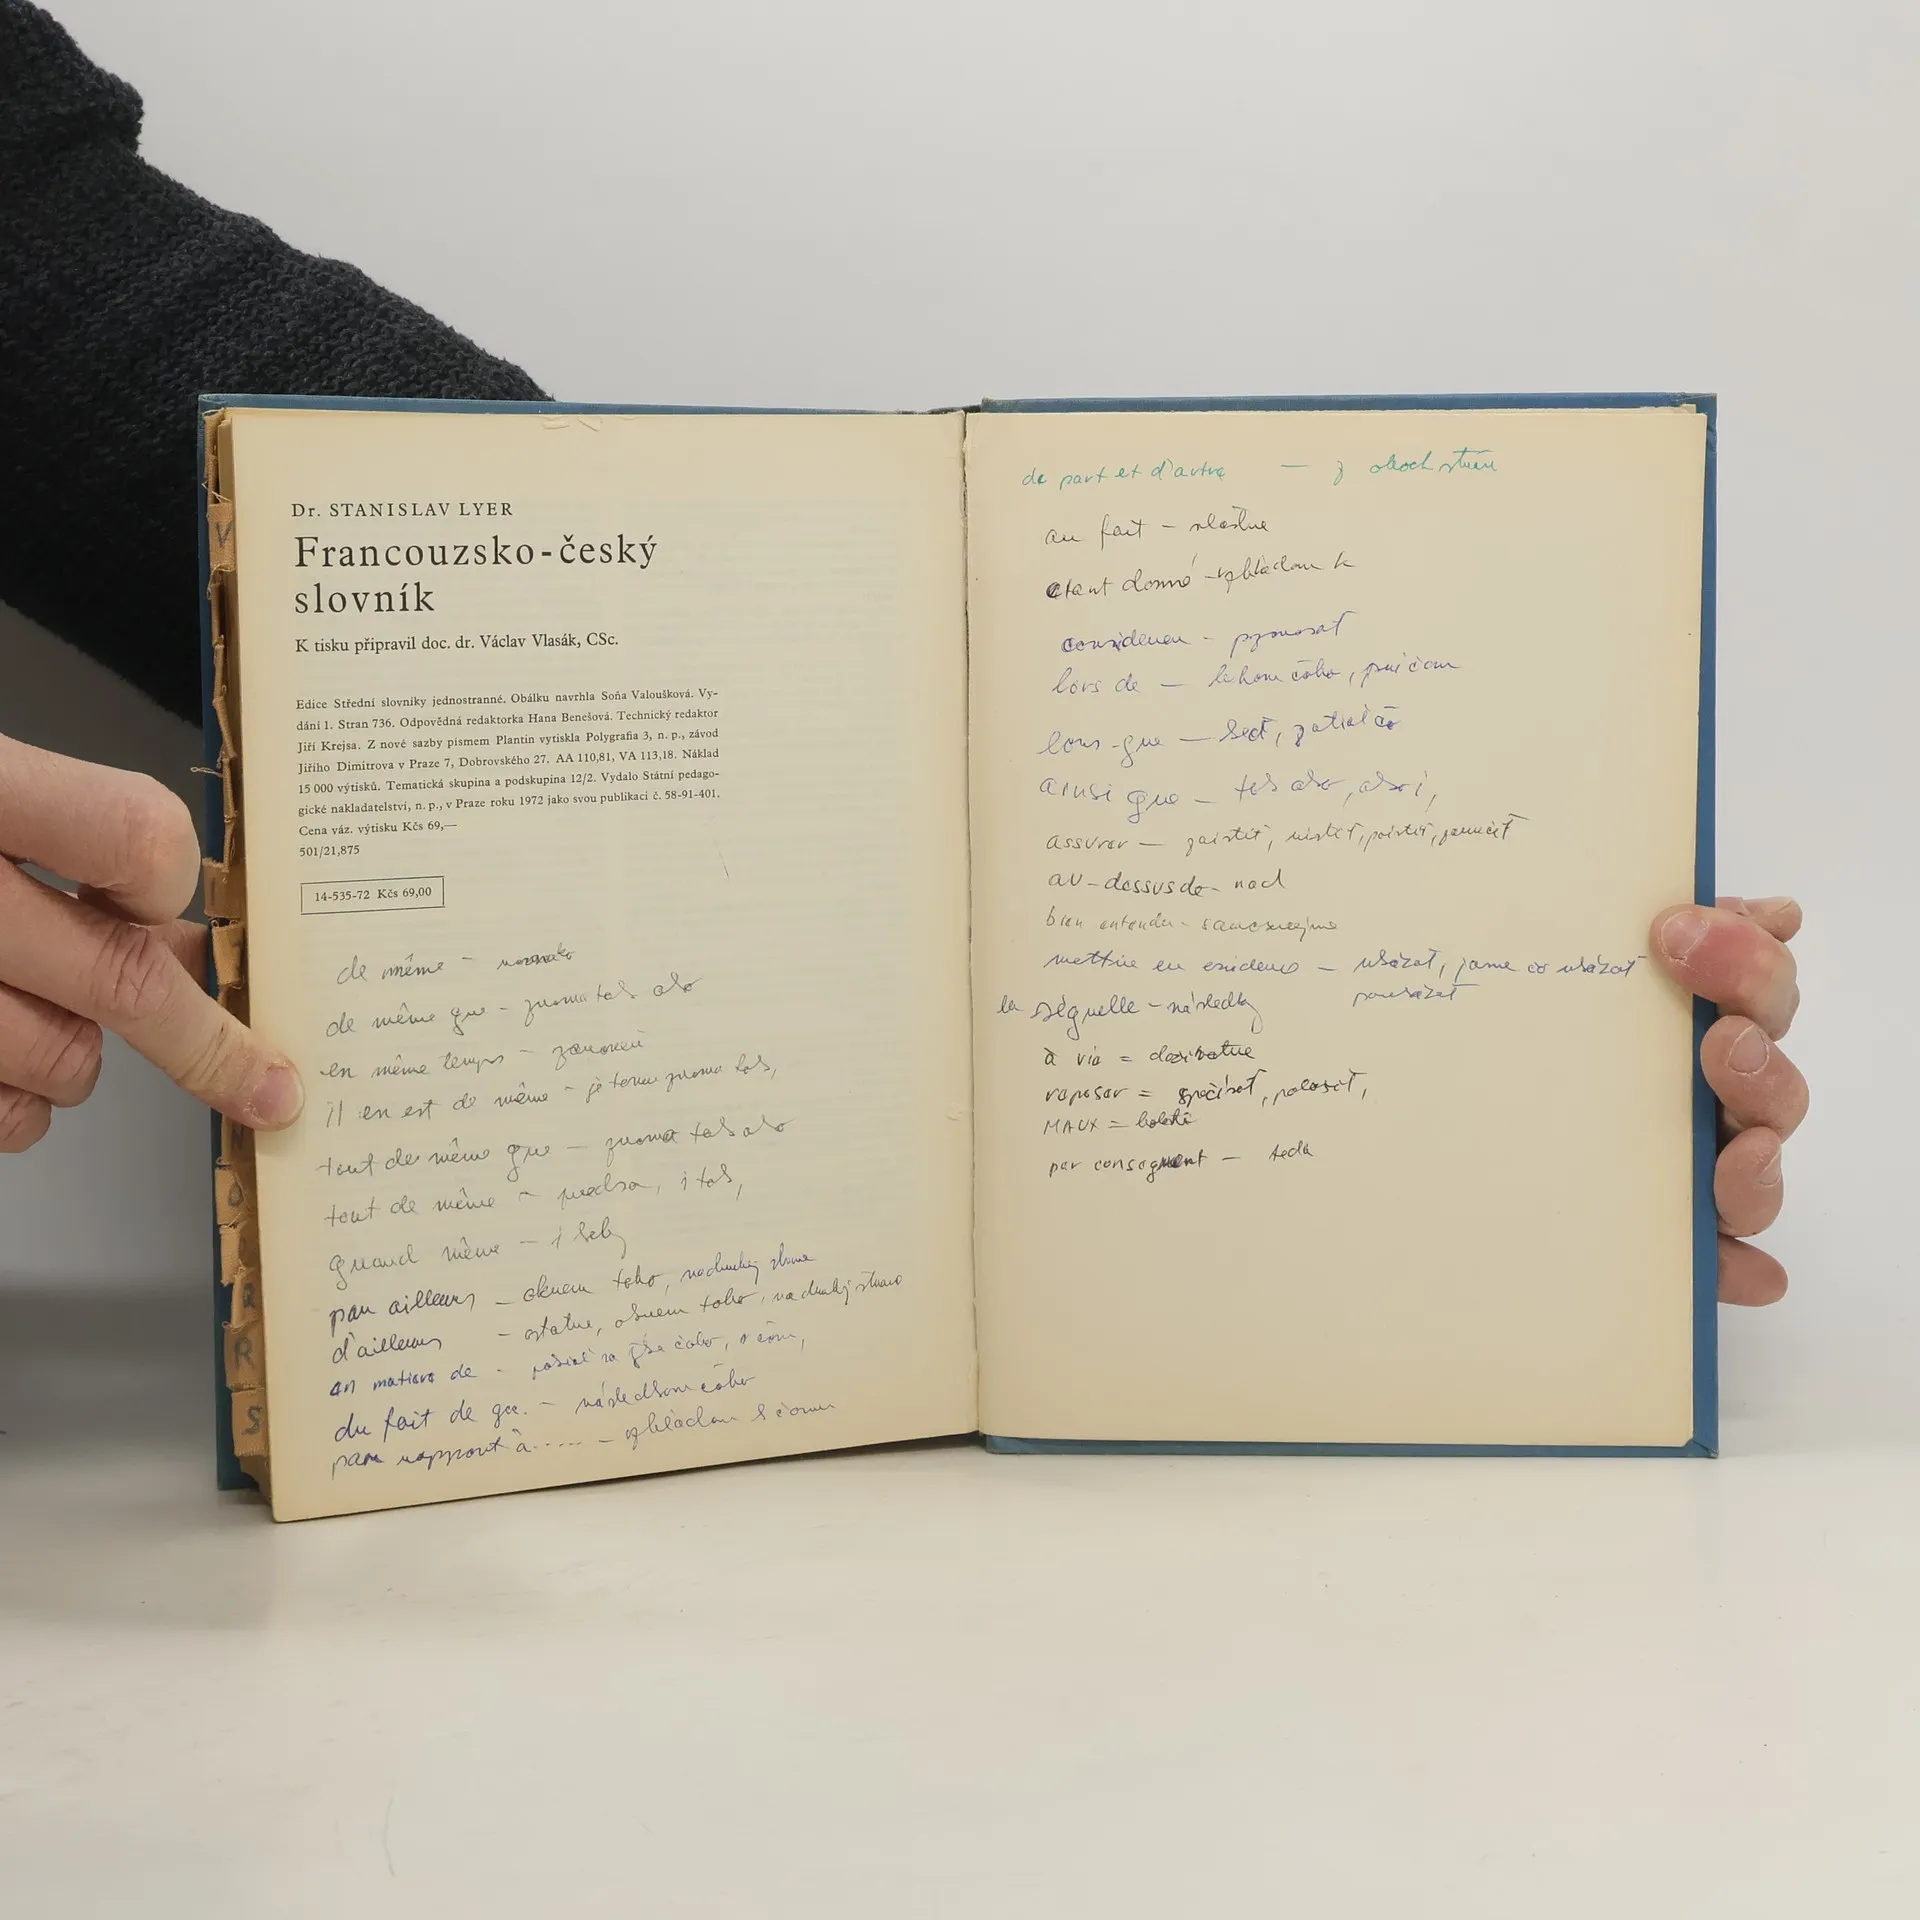 Dr. STANISLAV LYER
Francouzsko-český
slovník
K tisku připravil doc. dr. Václav Vlasák, CSc.
Edice Střední slovníky jednostranné. Obálku navrhla Soňa Valoušková. Vy-
dání 1. Stran 736. Odpovědná redaktorka Hana Benešová. Technický redaktor
Jiří Krejsa. Z nové sazby písmem Plantin vytiskla Polygrafia 3, n. p., závod
Jiřího Dimitrova v Praze 7, Dobrovského 27. AA 110,81, VA 113,18. Náklad
15 000 výtisků. Tematická skupina a podskupina 12/2. Vydalo Státní pedago-
gické nakladatelství, n. p., v Praze roku 1972 jako svou publikaci č. 58-91-401.
Cena váz. výtisku Kčs 69,—
501/21,875
14-535-72 Kčs 69,00
de même –
de même que – ako
en même temps – zároveň
il en est de même – je tomu tak,
tout de même que – tak ako
tout de même – predsa, i tak,
quand même – i keby
par ailleurs – okrem toho, na druhej strane
d'ailleurs – ostatne, okrem toho, na druhej strane
en matiere de –
du fait de que. – následkom čoho
par rapport à ..... – vzhľadom k čomu
de part et d'autre — z oboch strán
au fait – vlastne
étant donné – vzhľadom k
lors de — behom čoho, pričom
lors-que — keď, zatiaľ čo
ainsi que — tak ako, ako i,
assurer — zaistiť, uistiť, poistiť, zaručiť
au-dessus de – nad
bien entendu – samozrejme
mettre en evidence — ukázať, jasne čo ukázať
poukázať
la séquelle – následky
à vie = doživotne
reposer = spočívať, položiť,
MAUX = bolesti
par consequent — teda
V
O
Q
R
S